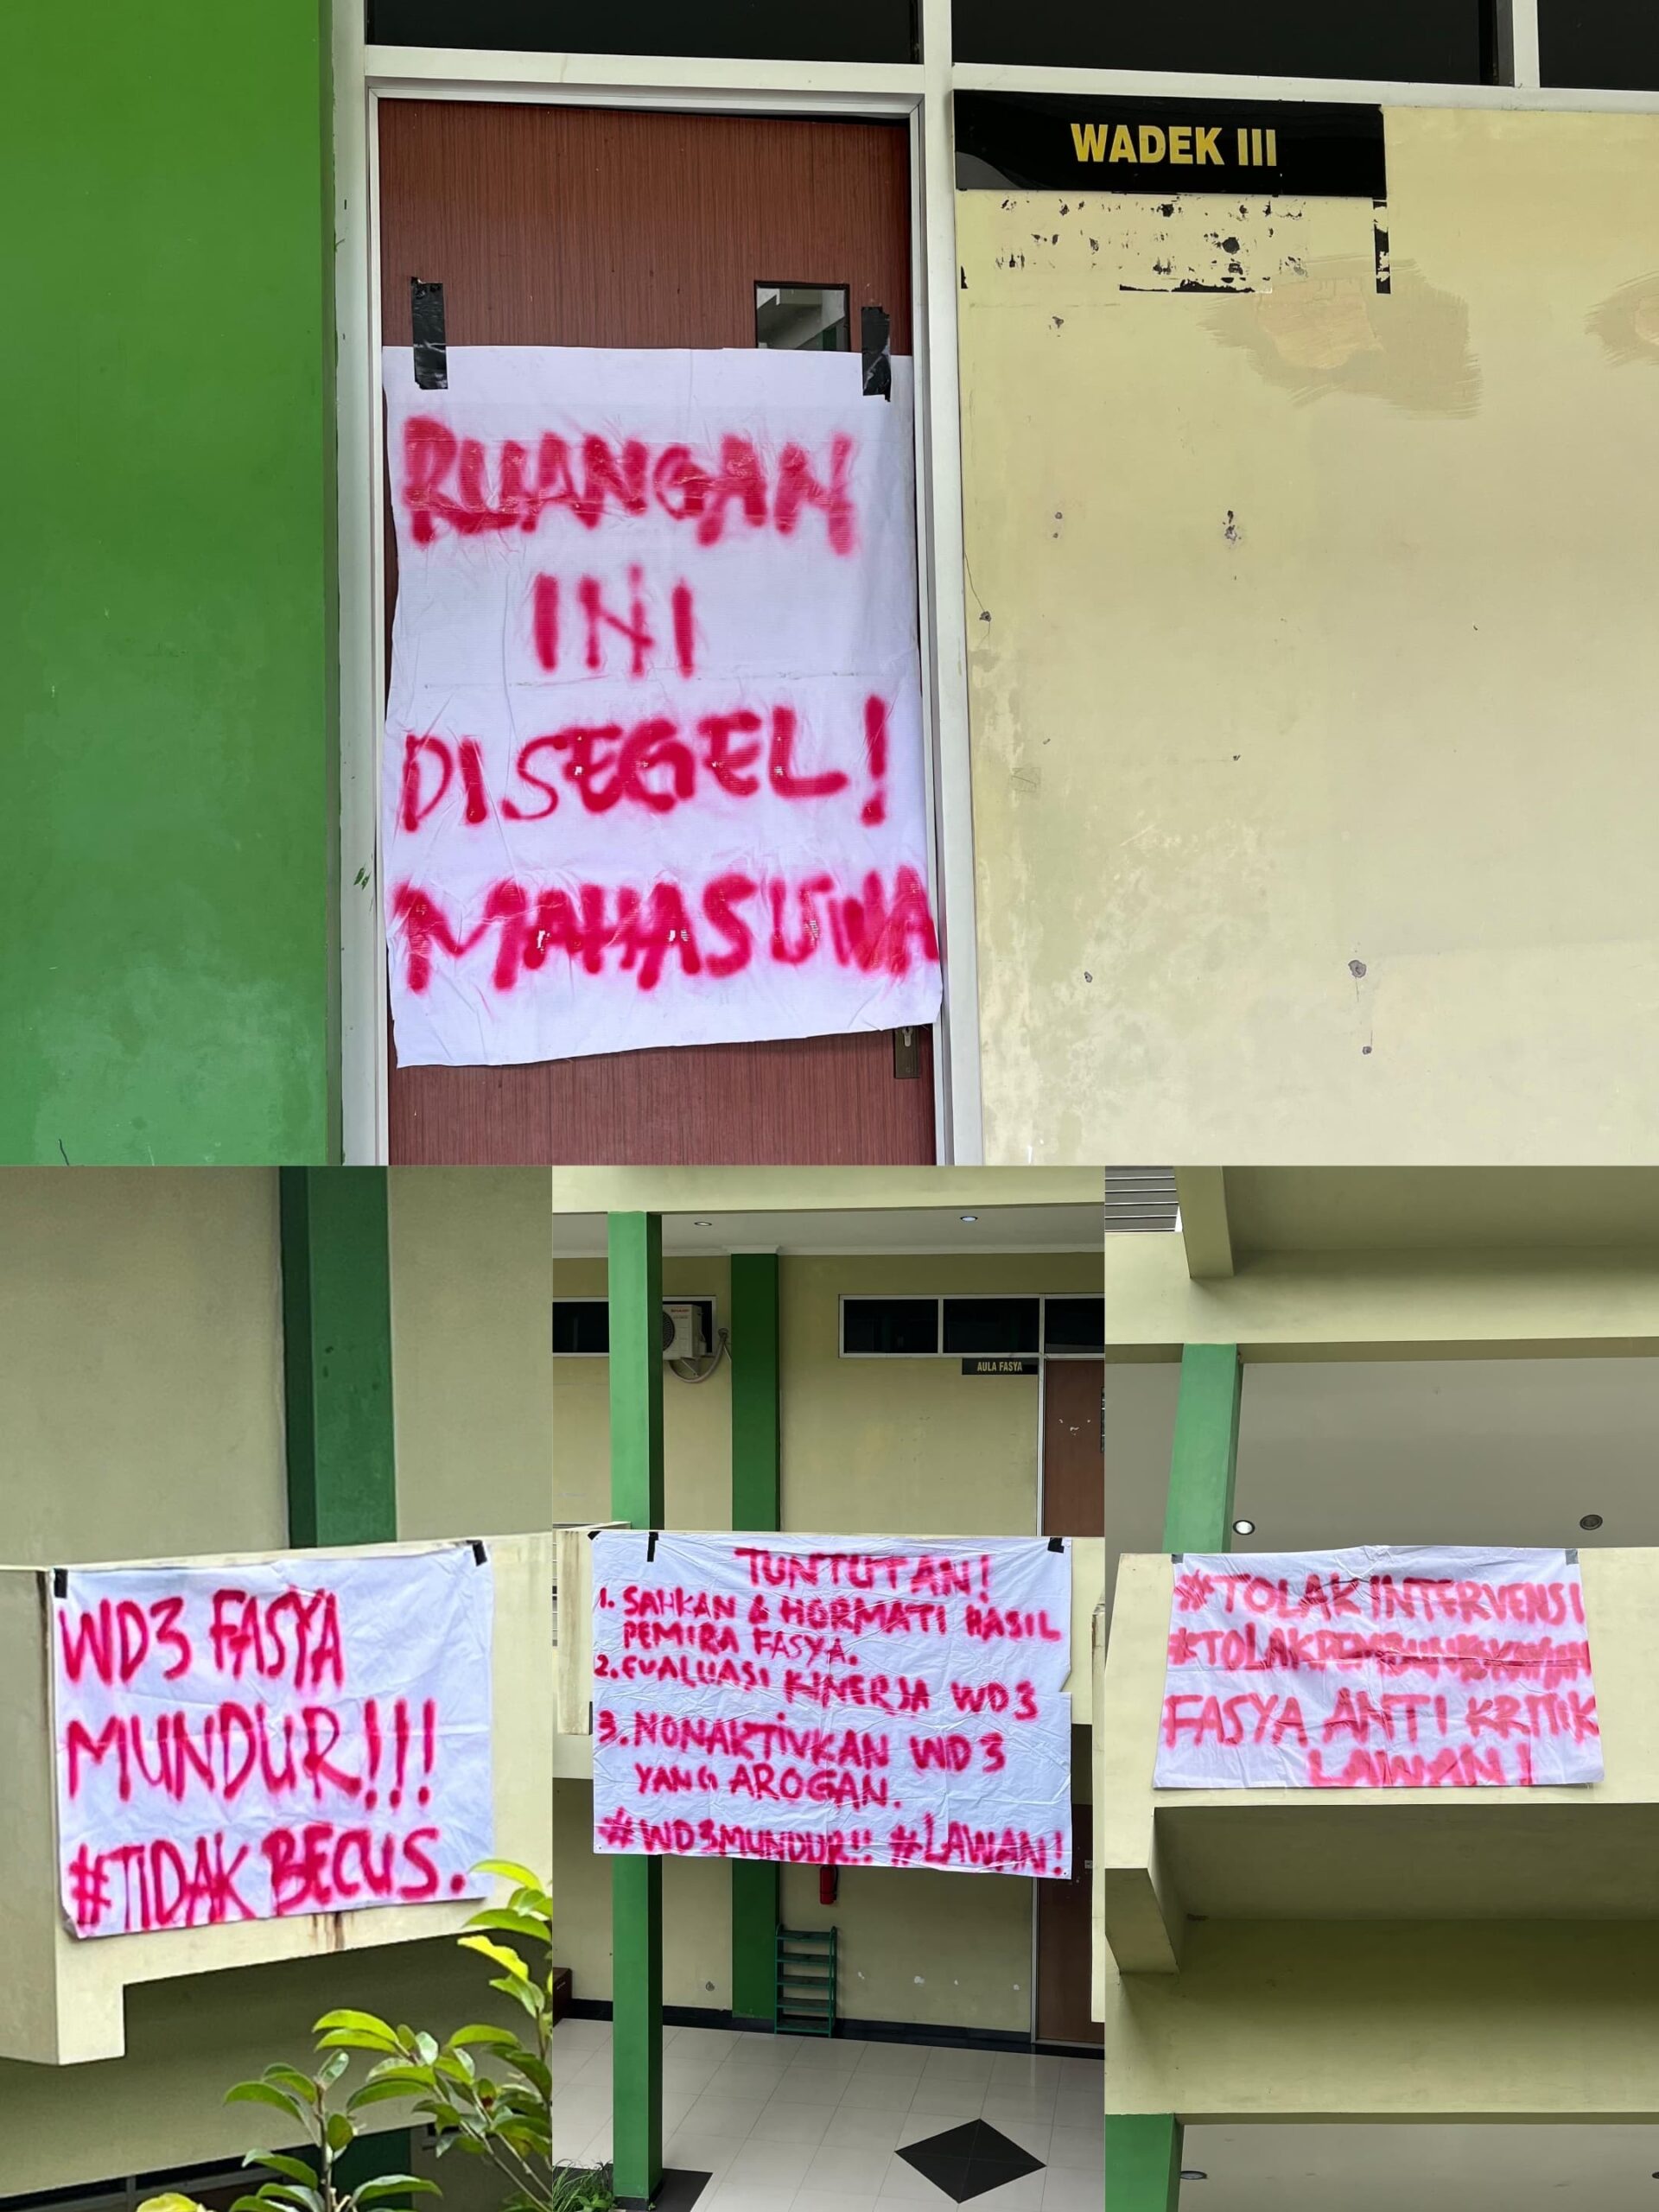 WADEK III
RUANGAN
INI
DISEGEL!
MAHASISWA
WD3 FASYA
MUNDUR!!!
#TIDAK BECUS.
AULA FASYA
TUNTUTAN!
1. SAHKAN & HORMATI HASIL
PEMIRA FASYA.
2. EVALUASI KINERJA WD3
3. NONAKTIVKAN WD3
YANG AROGAN.
#WD3MUNDUR!! #LAWAN!
#TOLAK INTERVENSI
#TOLAKPEMBUNGKAMAN
FASYA ANTI KRITIK
LAWAN!